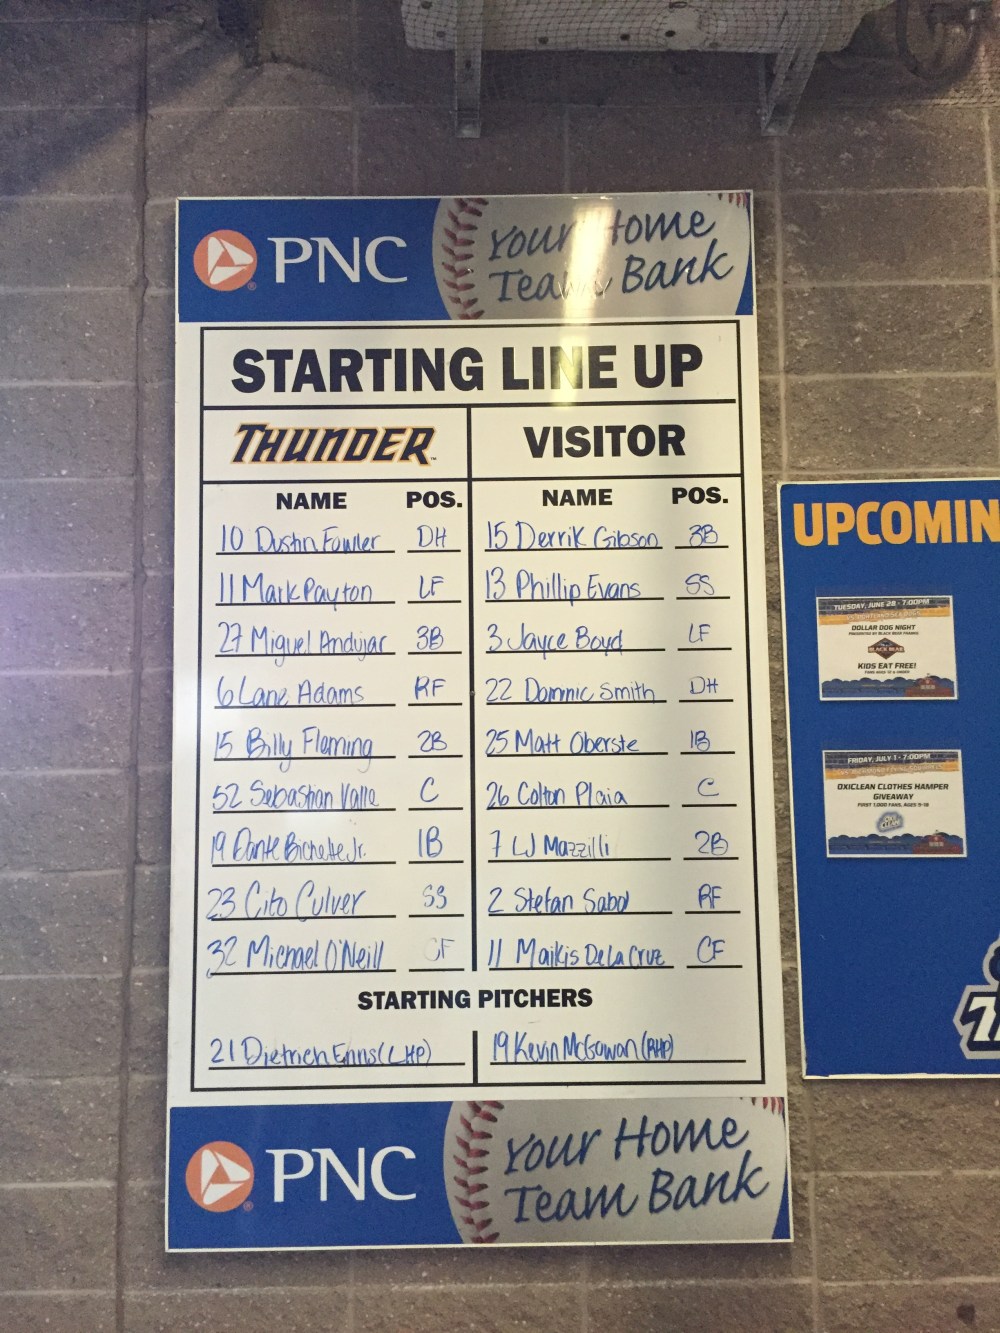 PNC
Your Home
Team Bank
STARTING LINE UP
THUNDER
VISITOR
NAME POS. NAME POS.
10 Dustin Fowler DH 15 Derrik Gibson 3B
11 Mark Payton LF 13 Phillip Evans SS
27 Miguel Andujar 3B 3 Jayce Boyd LF
6 Lane Adams RF 22 Dominic Smith DH
15 Billy Fleming 2B 25 Matt Oberste 1B
52 Sebastian Valle C 26 Colton Plaia C
19 Dante Bichette Jr. 1B 7 LJ Mazzilli 2B
23 Cito Culver SS 2 Stefan Sabol RF
32 Michael O'Neill CF 11 Maikis De La Cruz CF
STARTING PITCHERS
21 Dietrich Enns (LHP) 19 Kevin McGowan (RHP)
PNC
Your Home
Team Bank
UPCOMIN
TUESDAY, JUNE 28 - 7:00PM
DOLLAR DOG NIGHT
PRESENTED BY BLACK BEAR FRANKS
BLACK BEAR
KIDS EAT FREE!
FRIDAY, JULY 1 - 7:00PM
OXICLEAN CLOTHES HAMPER
GIVEAWAY
FIRST 1,000 FANS, AGES 9-18